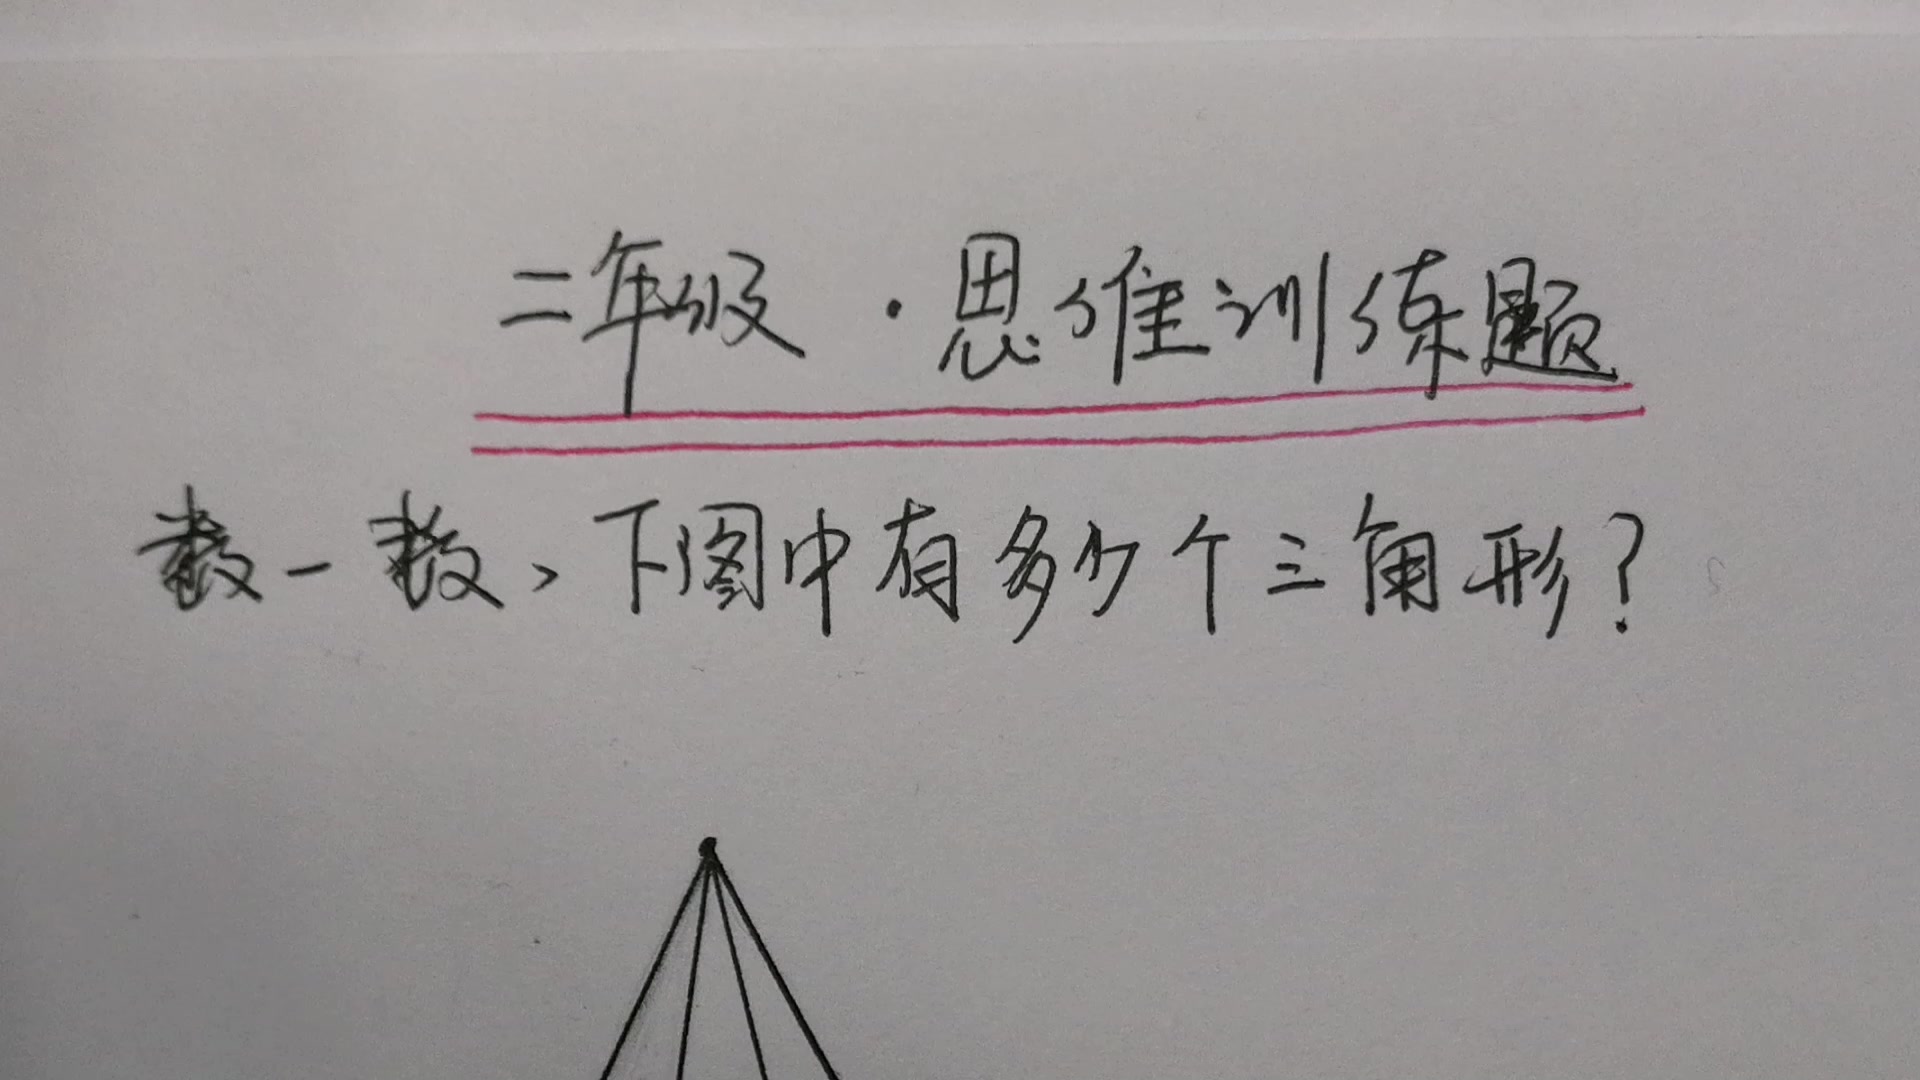 二年级·思维训练题
数一数、下图中有多少个三角形?